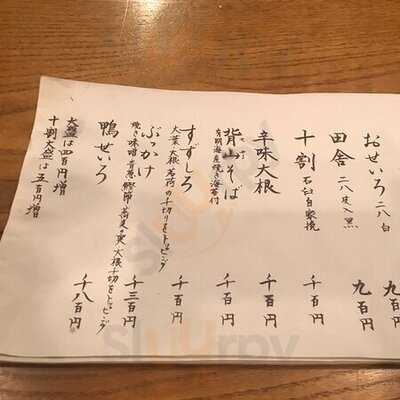 おせいろ 二八 白 九百円
田舎 二八 皮入 黒 九百円
十割 石臼自家挽 千百円
辛味大根 千百円
背山そば 千百円
有明海産焼き海苔付
すずしろ 千百円
大葉 大根 茗荷の千切りをトッピング
ぶっかけ 千三百円
焼き味噌 青葱 鰹節 蕎麦の実 大根千切をトッピング
鴨せいろ 千八百円
大盛は四百円増
十割大盛は五百円増
Sluurpy